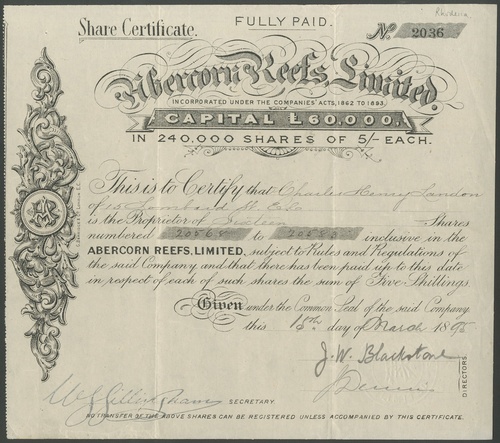 Rhodesia
Share Certificate.
FULLY PAID.
No. 2036
Abercorn Reefs, Limited.
INCORPORATED UNDER THE COMPANIES' ACTS, 1862 TO 1893.
CAPITAL £60,000,
IN 240,000 SHARES OF 5/- EACH.
This is to Certify that Charles Henry Landon
of 15 Lombard St. E.C.
is the Proprietor of Sixteen Shares
numbered to inclusive in the
ABERCORN REEFS, LIMITED, subject to Rules and Regulations of
the said Company, and that there has been paid up to this date
in respect of each of such shares the sum of Five Shillings.
Given under the Common Seal of the said Company
this day of March 1896
J. W. Blackstone
DIRECTORS.
SECRETARY.
NO TRANSFER OF THE ABOVE SHARES CAN BE REGISTERED UNLESS ACCOMPANIED BY THIS CERTIFICATE.